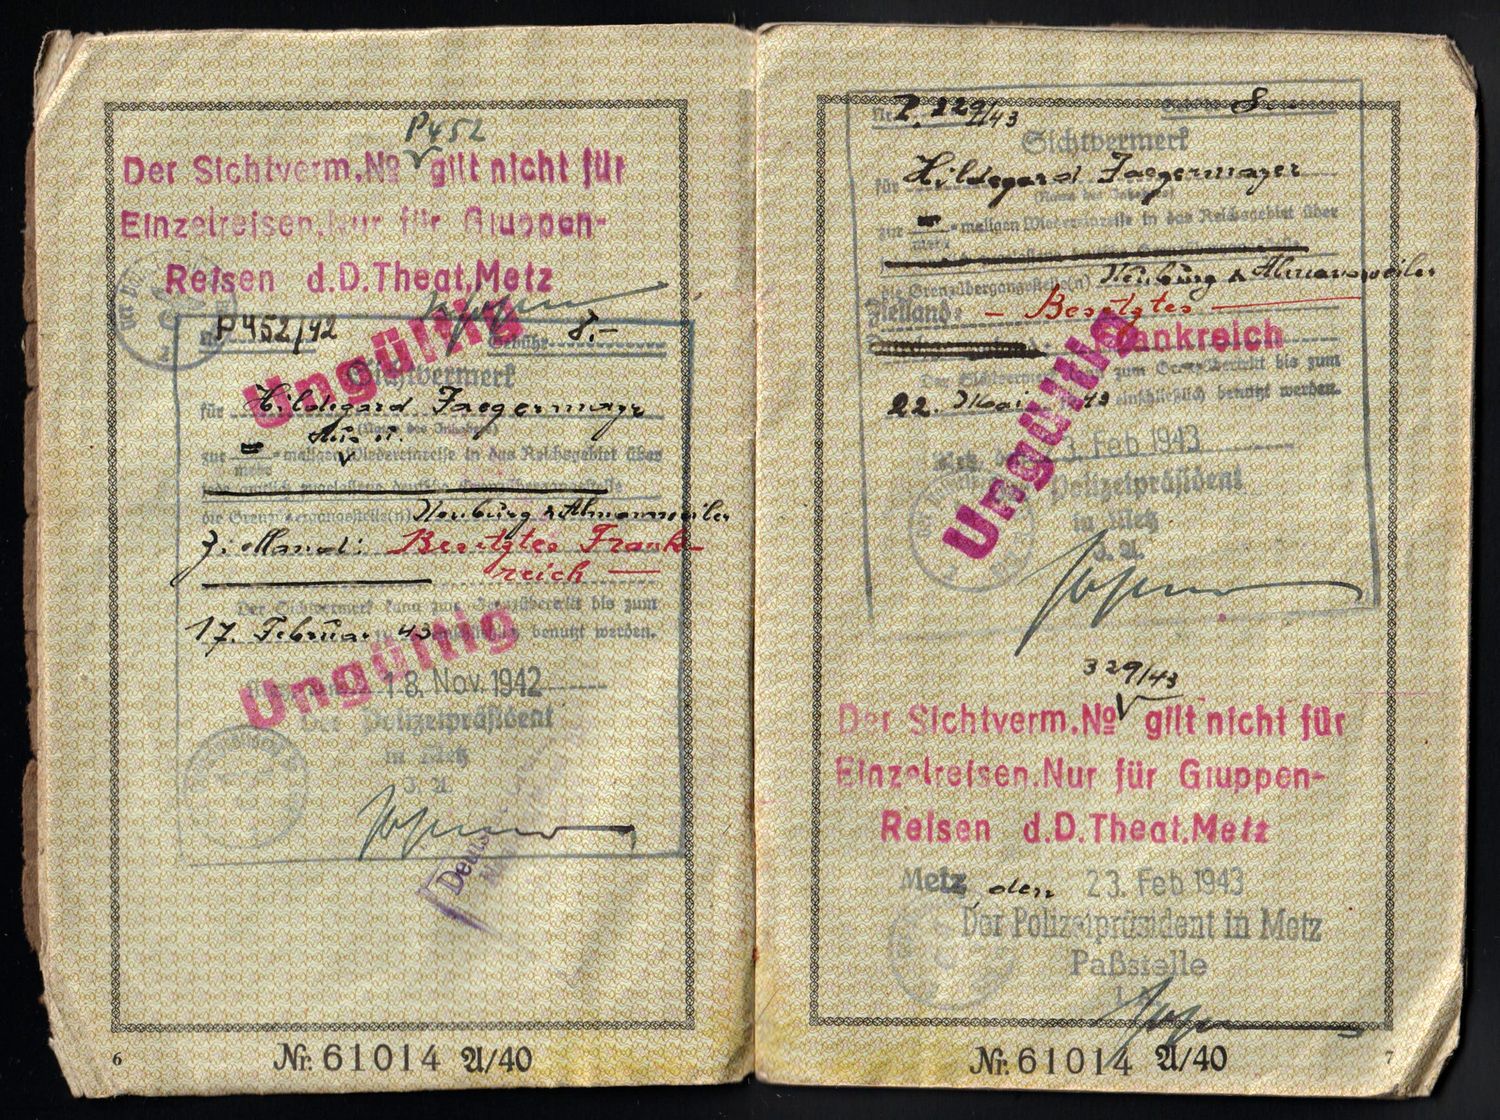 P452
Der Sichtverm. № gilt nicht für
Einzelreisen. Nur für Gruppen-
Reisen d. D. Theat. Metz
Nr. P452/42 Gebühr 8.-
Ungültig
Sichtvermerk
für Hildegard Jaegermayr
(Name des Inhabers)
zur = maligen Wiedereinreise in das Reichsgebiet über
mehr
jede amtlich zugelassene deutsche Grenzübergangsstelle
die Grenzübergangsstelle(n) Neuburg & Almansweiler
Zielland: Besetztes Frank-
reich —
Der Sichtvermerk kann zum Grenzübertritt bis zum
17. Februar 43 einschließlich benutzt werden.
Ungültig
18. Nov. 1942
Der Polizeipräsident
in Metz
J. A.
6
Nr. 61014 A/40
Nr. P. 329/43 8.-
Sichtvermerk
für Hildegard Jaegermayer
(Name des Inhabers)
zur = maligen Wiedereinreise in das Reichsgebiet über
mehr
die Grenzübergangsstelle(n) Neuburg & Almansweiler
Zielland: — Besetztes —
Frankreich
Der Sichtvermerk kann zum Grenzübertritt bis zum
22. Mai 43 einschließlich benutzt werden.
Ungültig
Metz, den 23. Feb 1943
Polizeipräsident
in Metz
J. A.
329/43
Der Sichtverm. № gilt nicht für
Einzelreisen. Nur für Gruppen-
Reisen d. D. Theat. Metz
Metz, den 23. Feb 1943
Der Polizeipräsident in Metz
Paßstelle
Nr. 61014 A/40
7